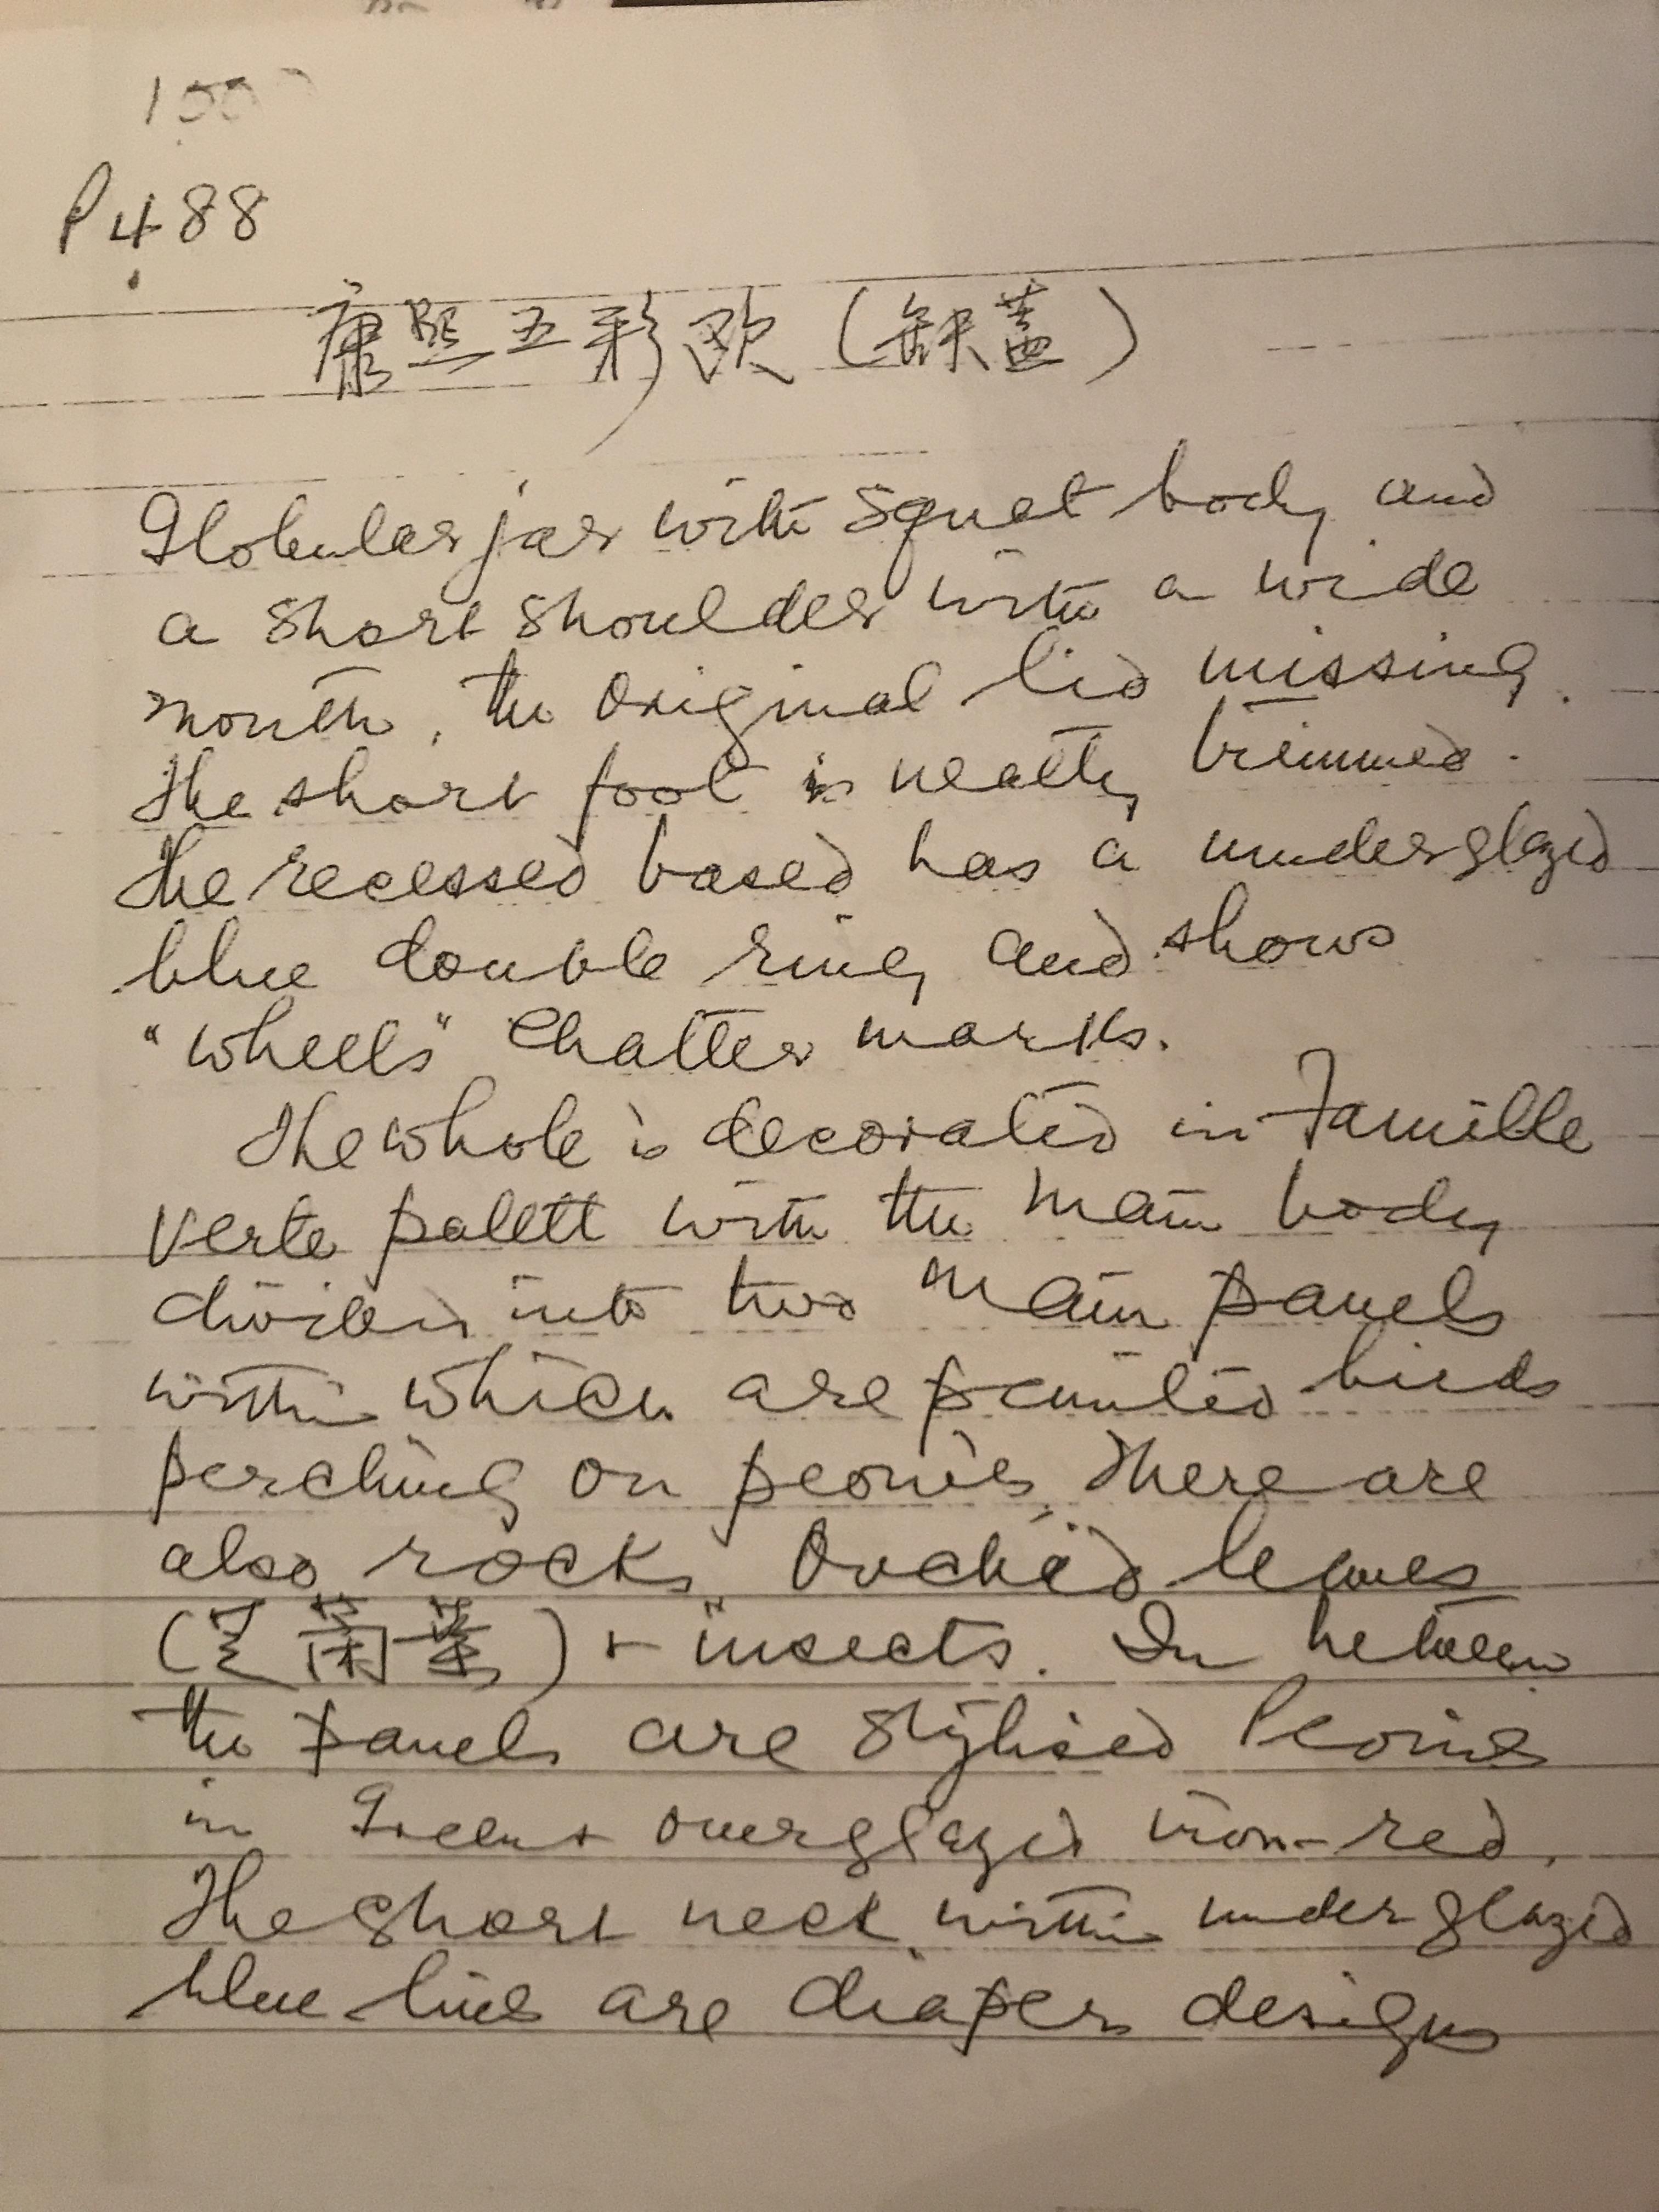 P488
康熙五彩欧(缺蓋)
Globular jar with squat body and
a short shoulder with a wide
mouth, the original lid missing.
The short foot is neatly trimmed.
The recessed based has a underglazed
blue double ring and shows
"wheels" chatter marks.
The whole is decorated in Famille
Verte palett with the main body
divided into two main panels
within which are painted birds
perching on peonies, There are
also rocks, leaves
(芝蘭葉) + insects. In between
the panels are stylised Peonies
in Green + overglazed iron-red.
The short neck within underglazed
blue lines are diaper designs